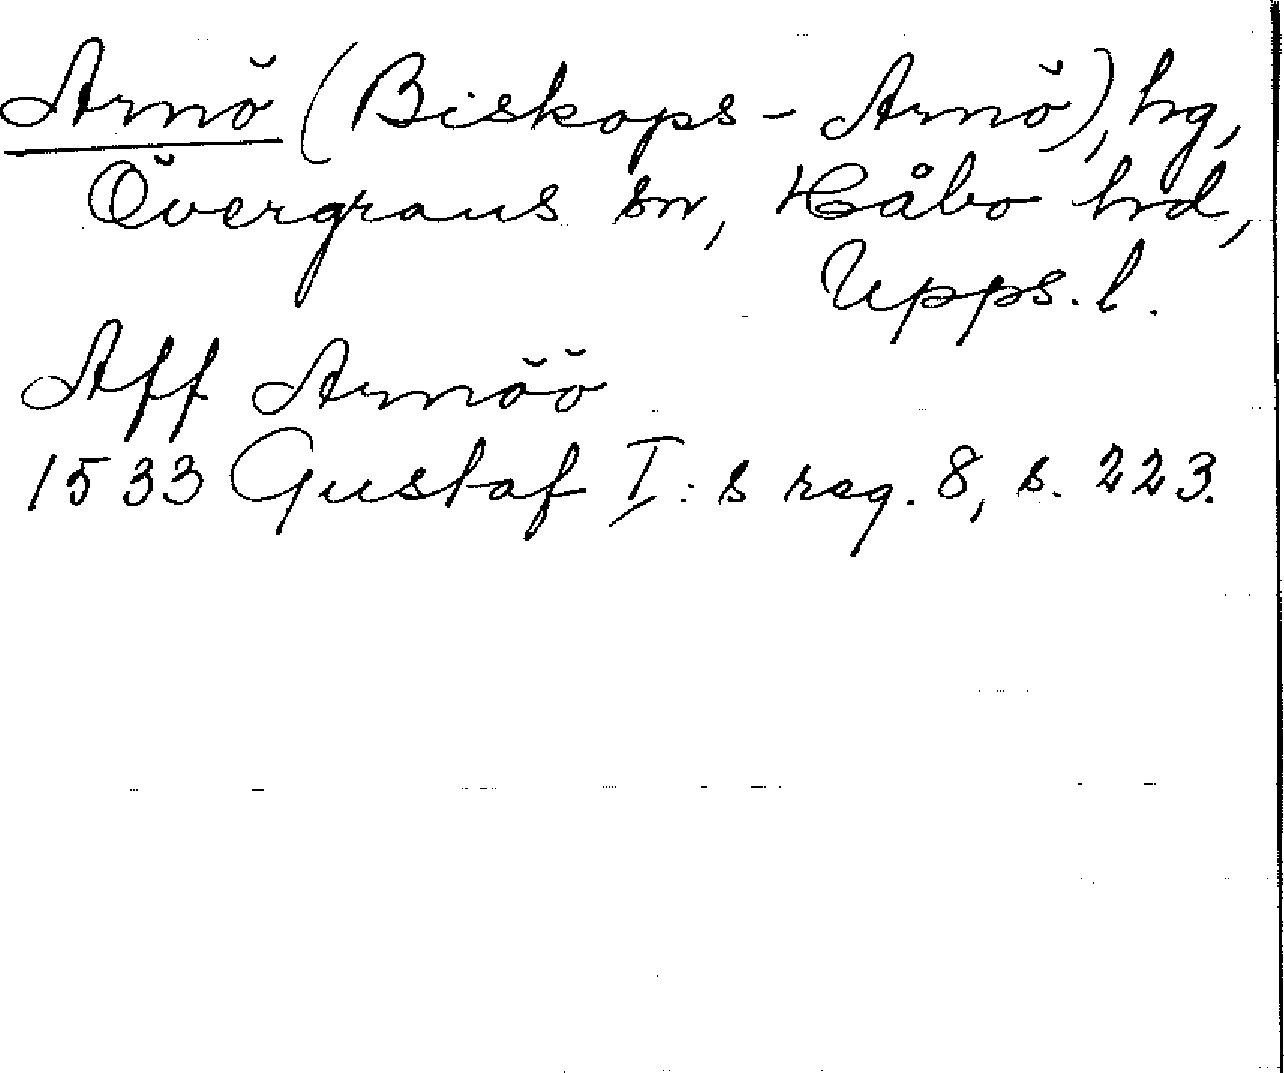 Arnö (Biskops-Arnö), hg,
Övergrans sn, Håbo hrd,
Upps. l.
Aff Arnöö
1533 Gustaf I:s reg. 8, s. 223.